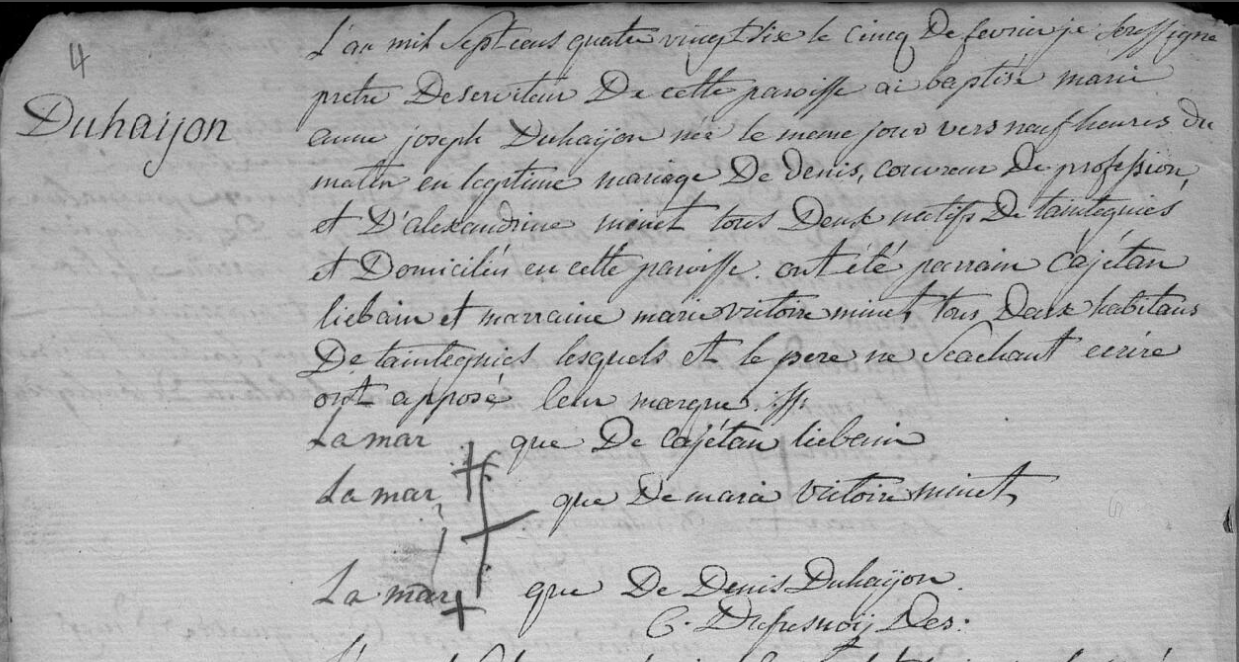 4
Duhaÿon
L'an mil sept cens quatre vingt six le cinq De fevrier je soussigné
pretre Deserviteur De cette paroisse ai baptisé marie
anne joseph Duhaÿon née le meme jour vers neuf heures du
matin en legitime mariage De denis, couvreur De profession,
et D'alexandrine minet tous Deux natifs De taintegnies
et Domiciliés en cette paroisse. ont été parrain Cajétan
liebain et marraine marie victoire minet, tous Deux habitans
De taintegnies lesquels et le pere ne scachant ecrire
ont apposé leur marque.
La mar que De cajétan liebain
La mar que De marie victoire minet,
La mar que De Denis Duhaÿon
C. Dufresnoÿ Des: